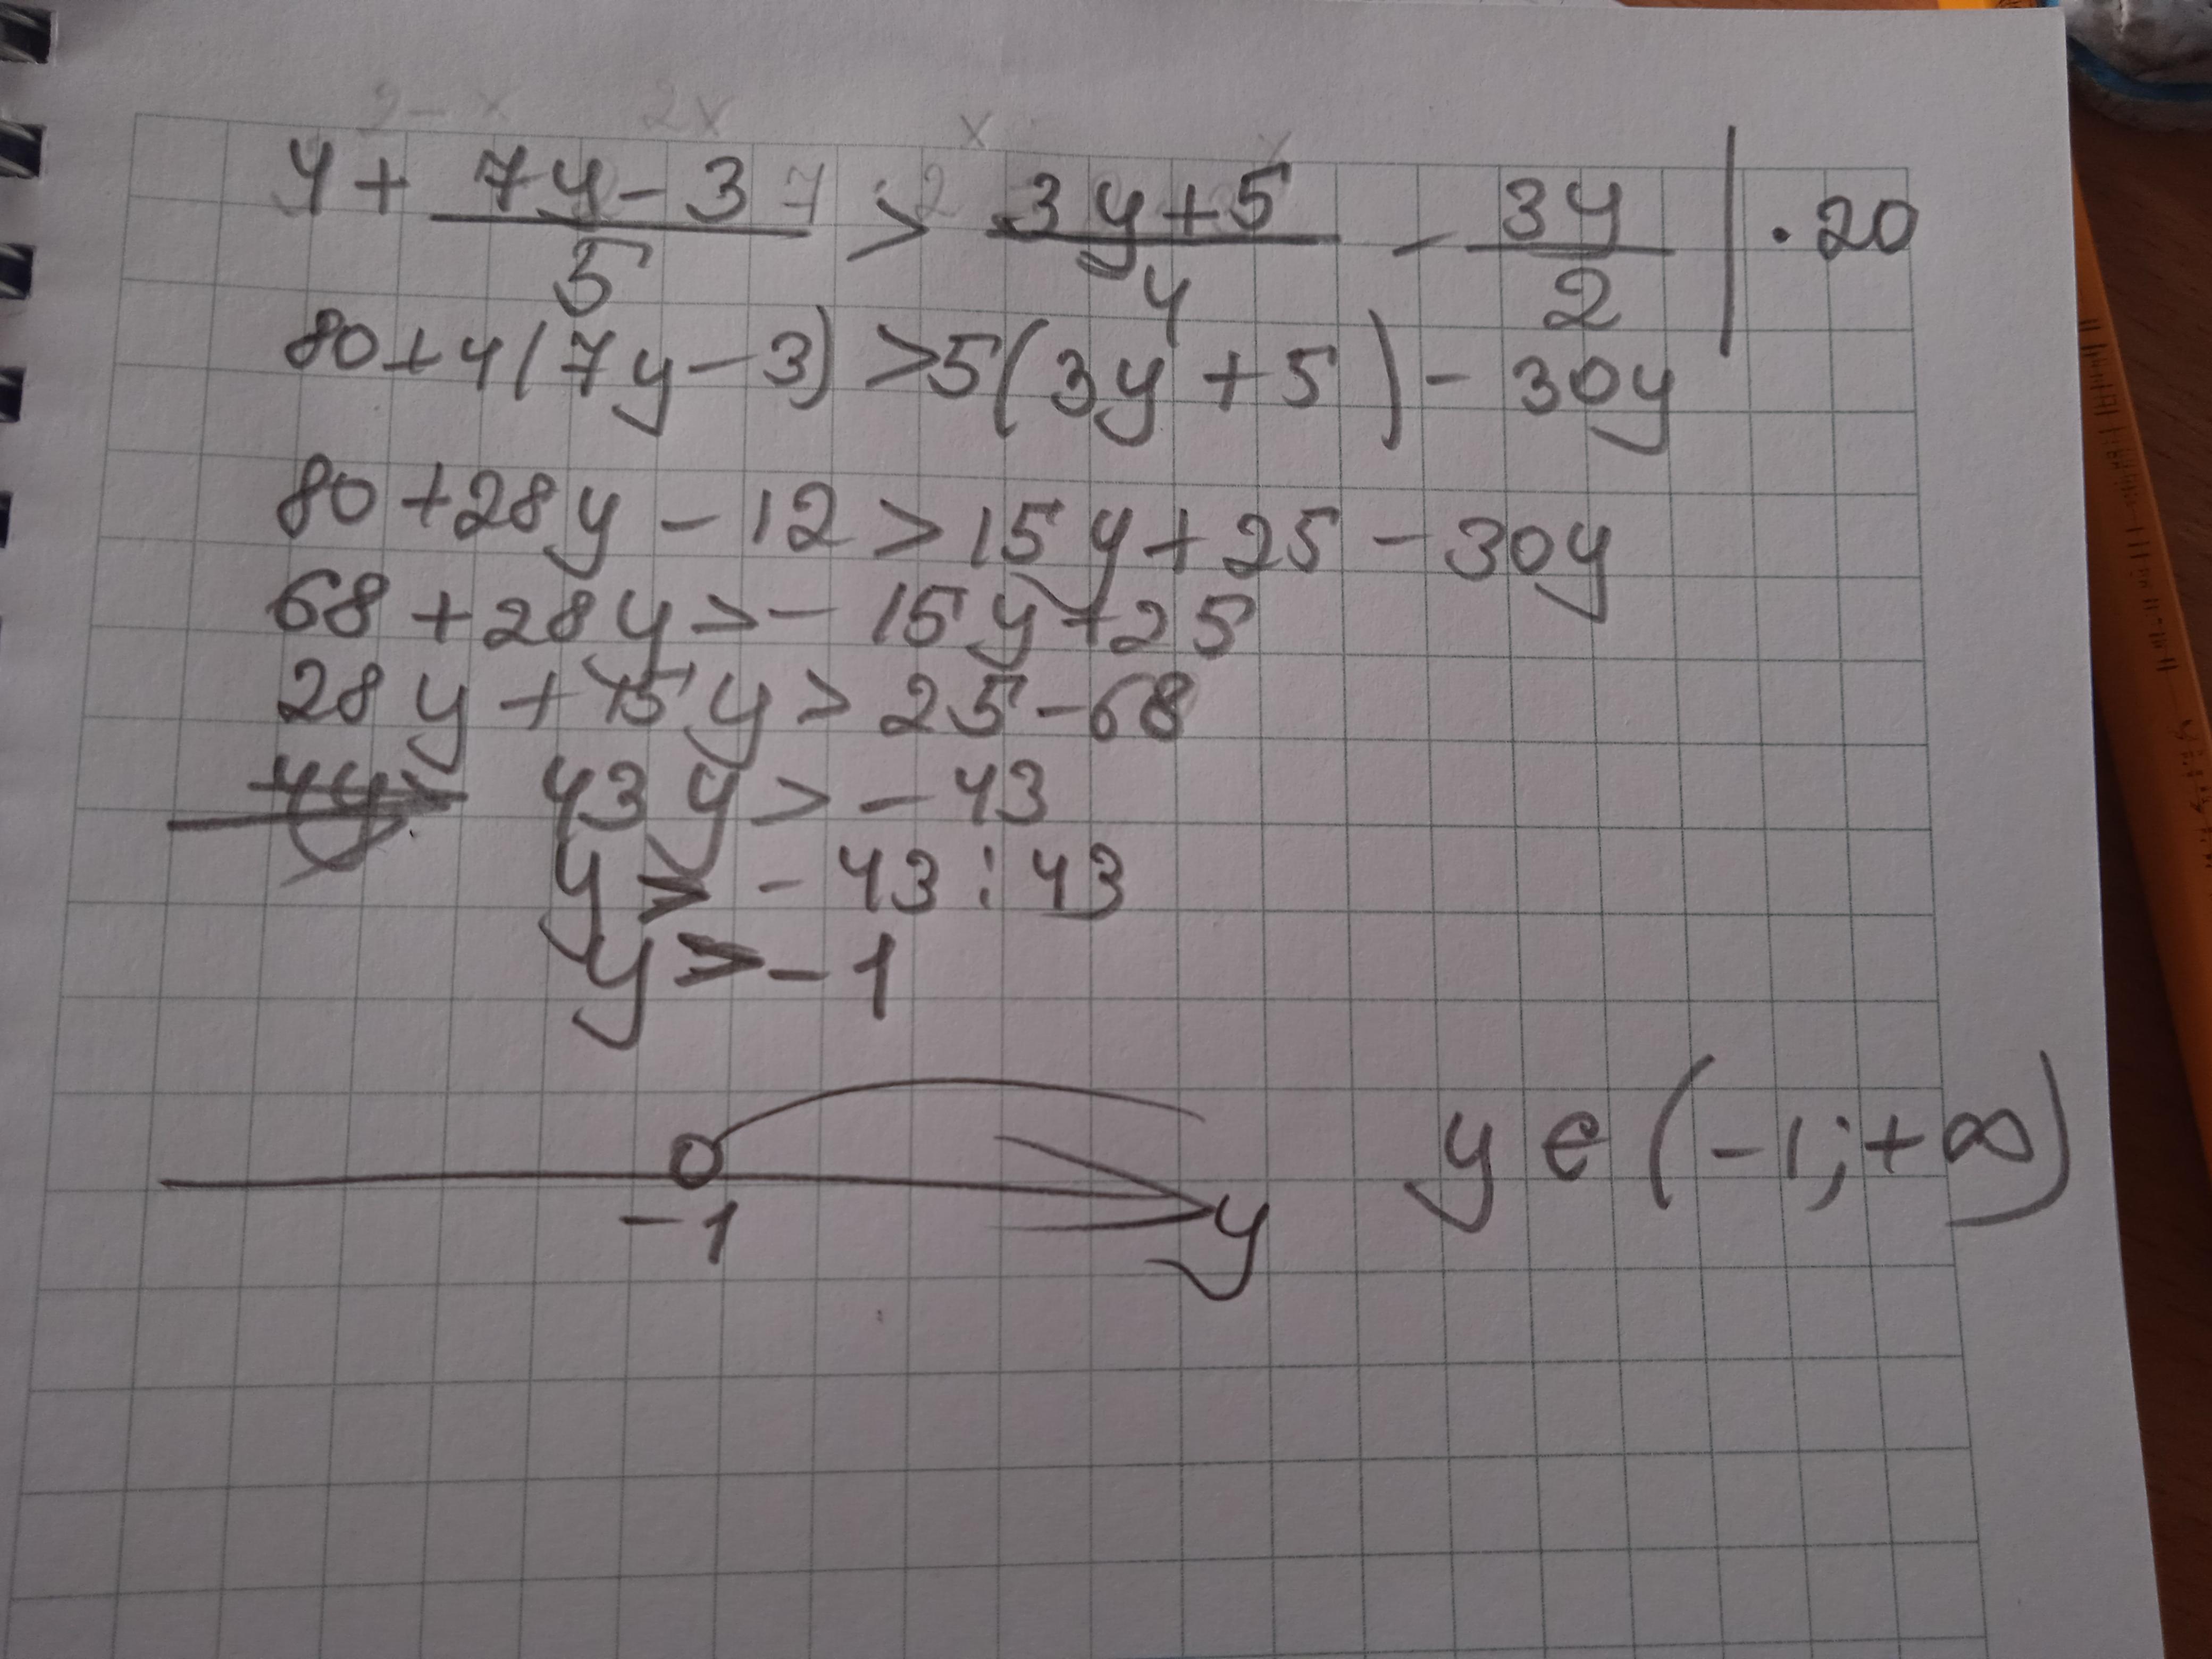 4 + \frac{7y-3}{5} > \frac{3y+5}{4} - \frac{3y}{2} | · 20
80+4(7y-3) >5(3y+5)-30y
80+28y-12>15y+25-30y
68+28y>-15y+25
28y+15y>25-68
43y>-43
y>-43:43
y>-1
-1 y
y e (-1;+∞)